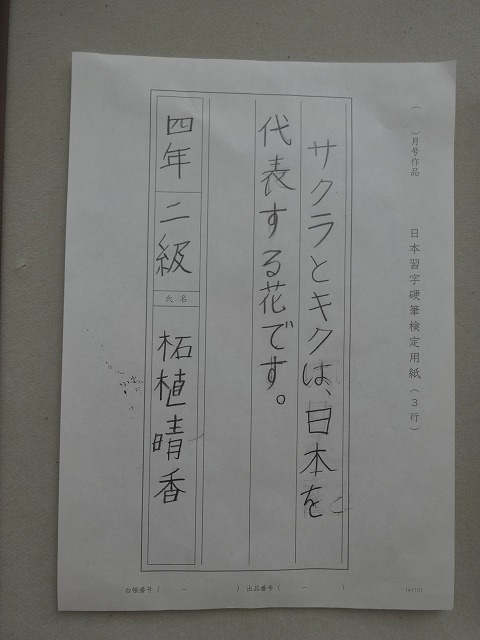 （　　）月号作品
日本習字硬筆検定用紙（３行）
サクラとキクは、日本を
代表する花です。
四年 二級
氏名
柘植晴香
台帳番号（　－　） 出品番号（　－　）